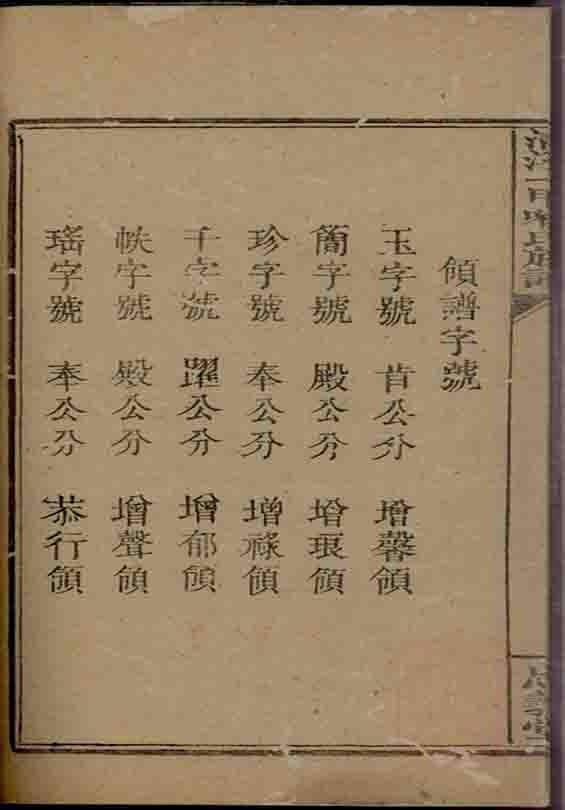 傾譜字號
玉字號 肯公分 增馨領
簡字號 殿公分 增珢領
珍字號 奉公分 增祿領
千字號 躍公分 增郁領
帙字號 殿公分 增聲領
瑤字號 奉公分 恭行領